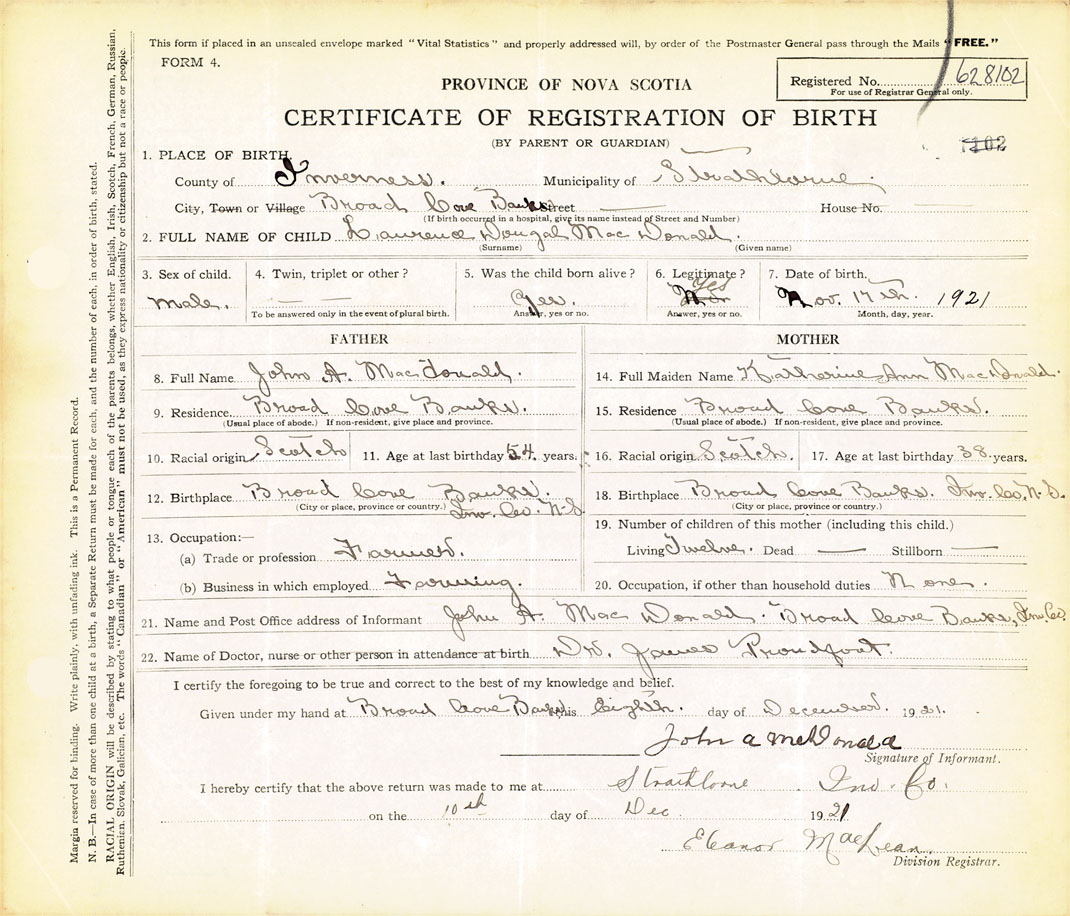 This form if placed in an unsealed envelope marked "Vital Statistics" and properly addressed will, by order of the Postmaster General pass through the Mails "FREE."
FORM 4.
Registered No. 628102
For use of Registrar General only.
PROVINCE OF NOVA SCOTIA
CERTIFICATE OF REGISTRATION OF BIRTH
(BY PARENT OR GUARDIAN)
1102
1. PLACE OF BIRTH.
County of Inverness. Municipality of Strathlorne.
City, Town or Village Broad Cove Banks Street House No.
(If birth occurred in a hospital, give its name instead of Street and Number)
2. FULL NAME OF CHILD Laurence Dougal Mac Donald.
(Surname) (Given name)
3. Sex of child. 4. Twin, triplet or other? 5. Was the child born alive? 6. Legitimate? 7. Date of birth.
Yes
male. — — Yes. No Nov. 17th. 1921
To be answered only in the event of plural birth. Answer, yes or no. Answer, yes or no. Month, day, year.
FATHER MOTHER
8. Full Name John A. Mac Donald. 14. Full Maiden Name Katherine Ann Mac Donald.
9. Residence. Broad Cove Banks. 15. Residence Broad Cove Banks.
(Usual place of abode.) If non-resident, give place and province. (Usual place of abode.) If non-resident, give place and province.
10. Racial origin Scotch 11. Age at last birthday 54 years. 16. Racial origin Scotch. 17. Age at last birthday 38 years.
12. Birthplace Broad Cove Banks. 18. Birthplace Broad Cove Banks. Inv. Co. N.S.
(City or place, province or country.) Inv. Co. N.S (City or place, province or country.)
19. Number of children of this mother (including this child.)
13. Occupation:—
(a) Trade or profession Farmer. Living Twelve. Dead — Stillborn —
(b) Business in which employed Farming. 20. Occupation, if other than household duties None.
21. Name and Post Office address of Informant John A. Mac Donald. Broad Cove Banks, Inv. Co.
22. Name of Doctor, nurse or other person in attendance at birth Dr. James Proudfoot.
I certify the foregoing to be true and correct to the best of my knowledge and belief.
Given under my hand at Broad Cove Banks this Eighth. day of December. 1921.
John A McDonald
Signature of Informant.
I hereby certify that the above return was made to me at Strathlorne Inv. Co.
on the 10th day of Dec 1921
Eleanor MacLean.
Division Registrar.
Margin reserved for binding. Write plainly, with unfading ink. This is a Permanent Record.
N. B.—In case of more than one child at a birth, a Separate Return must be made for each, and the number of each, in order of birth, stated.
RACIAL ORIGIN will be described by stating to what people or tongue each of the parents belongs, whether English, Irish, Scotch, French, German, Russian,
Ruthenian, Slovak, Galician, etc. The words "Canadian" or "American" must not be used, as they express nationality or citizenship but not a race or people.